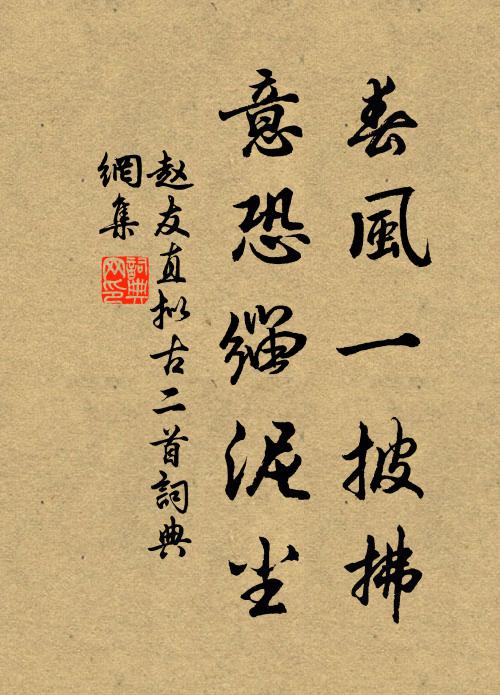 春風一披拂
意恐緇泥尘
赵友直拟古二首詞典
網集
詞典
网印